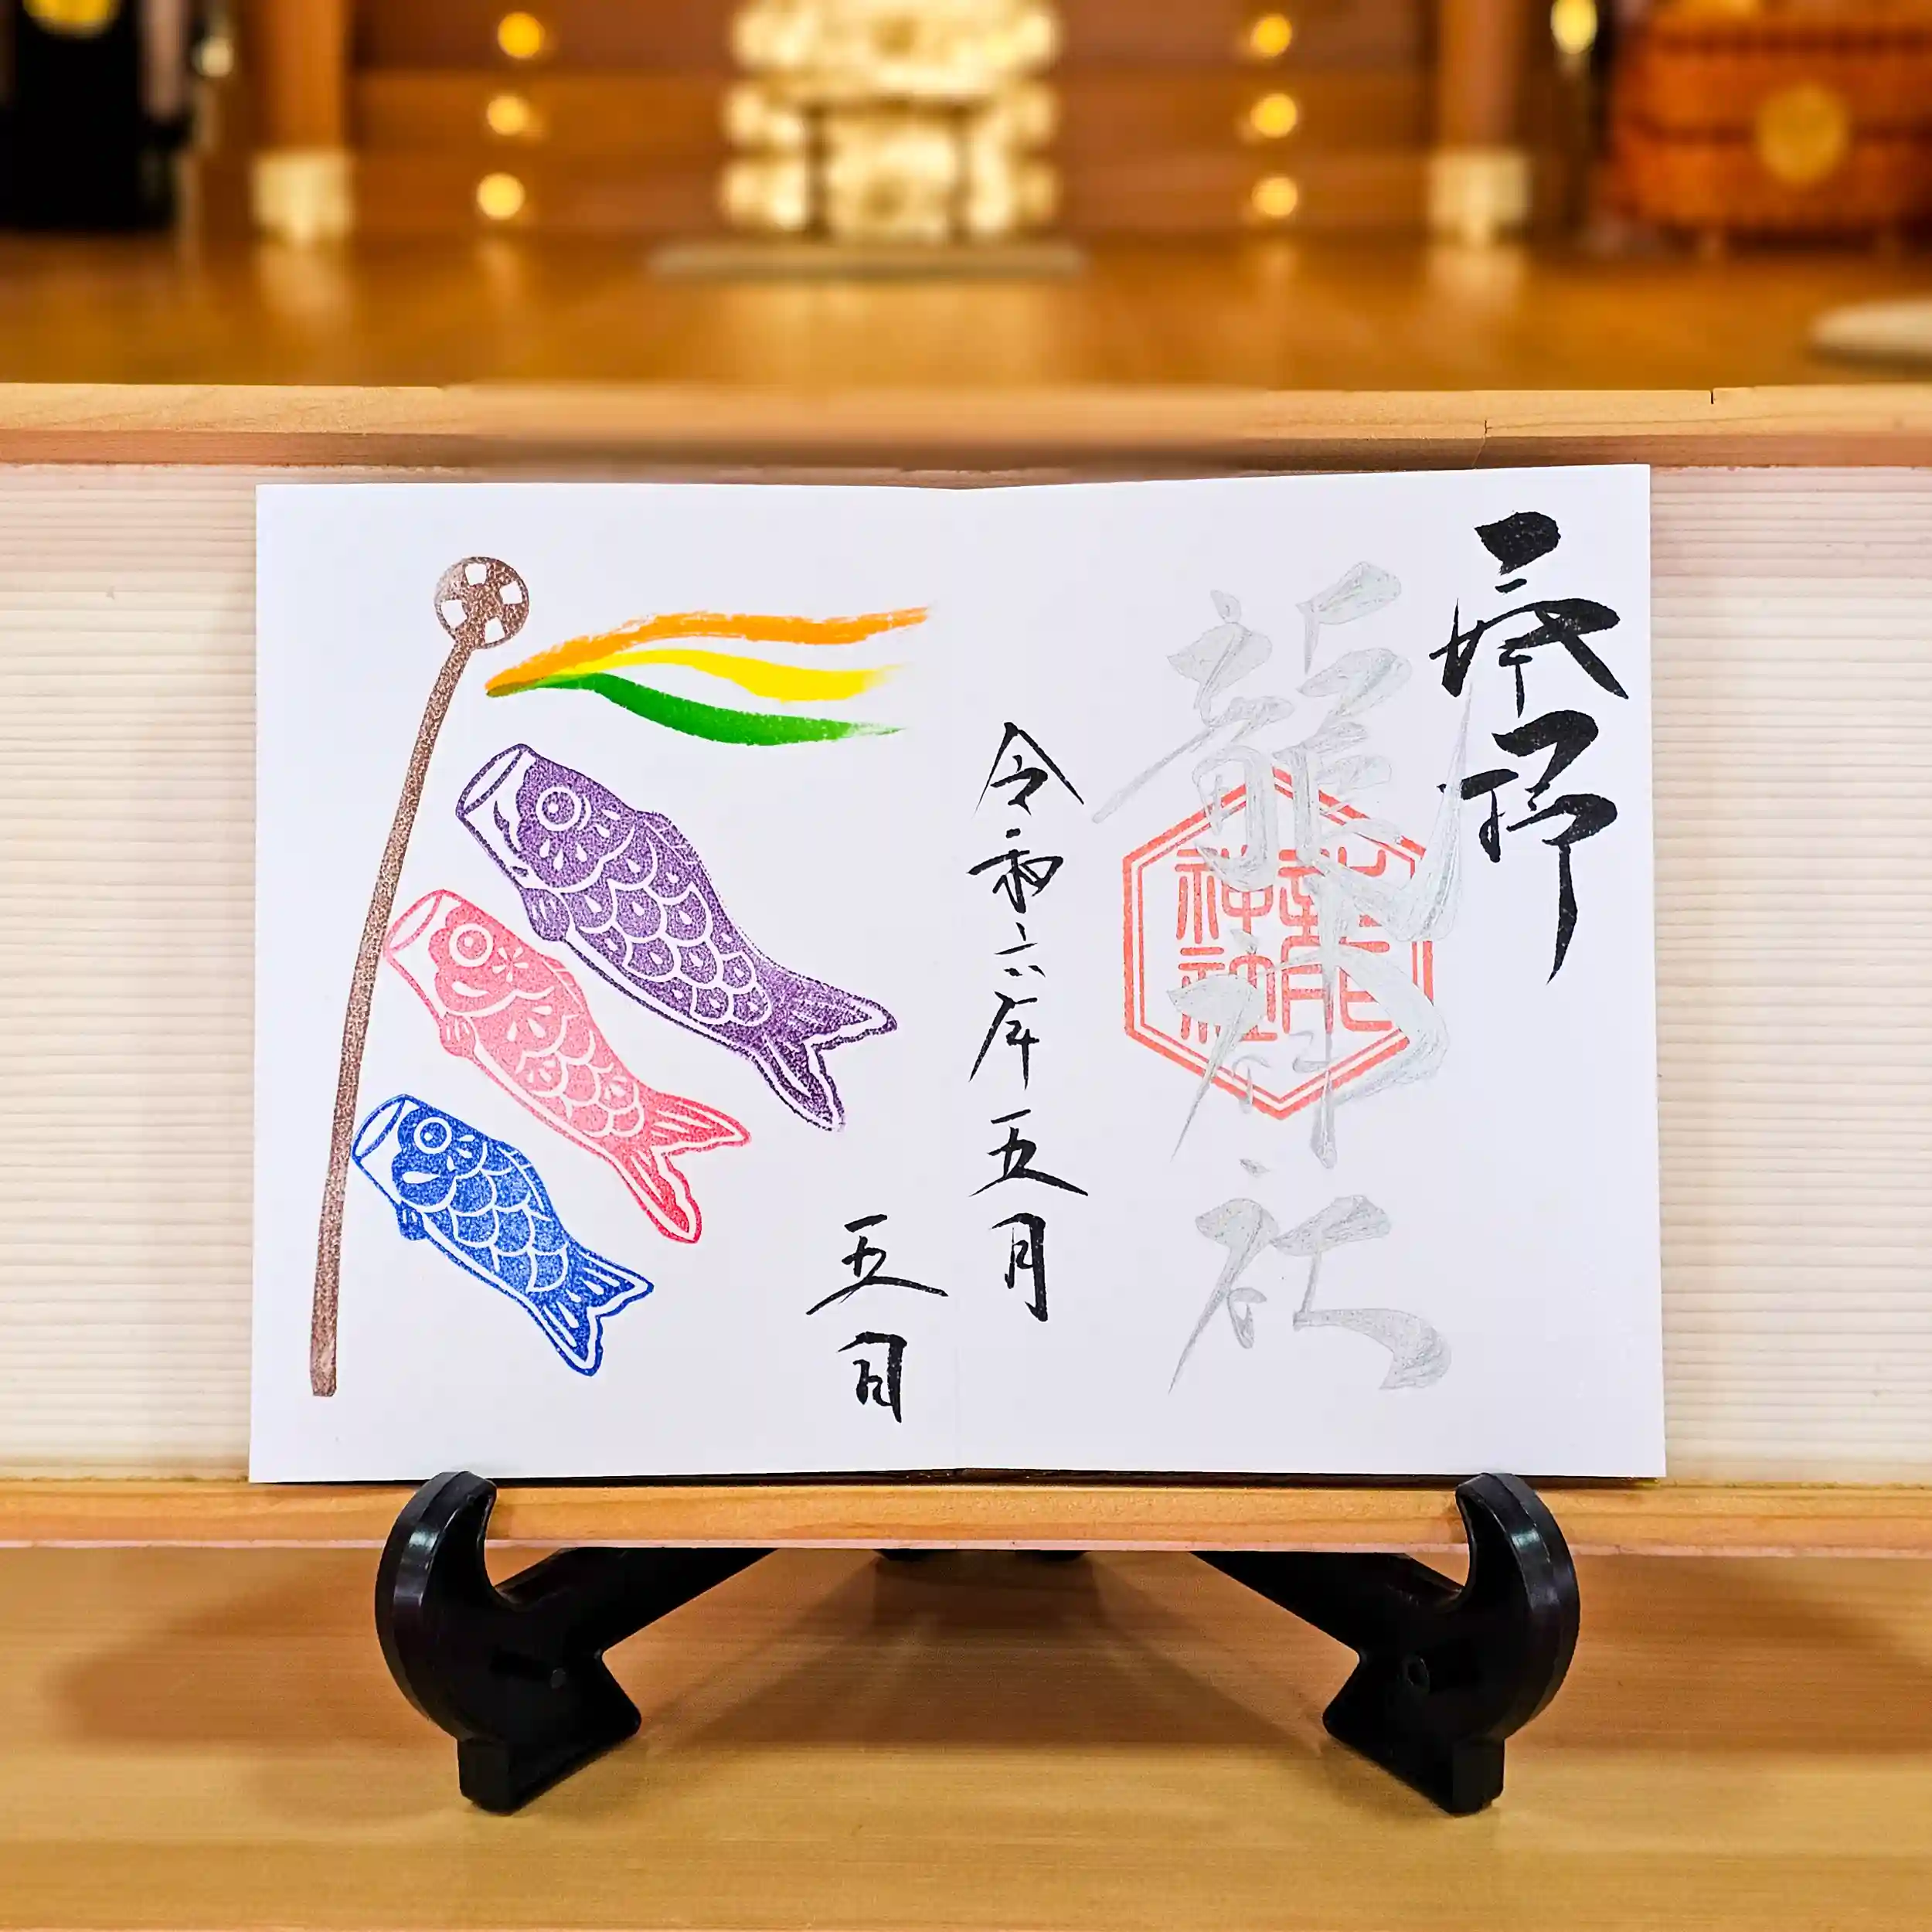 奉拝
龍神社
龍神
神社
令和六年五月
五日